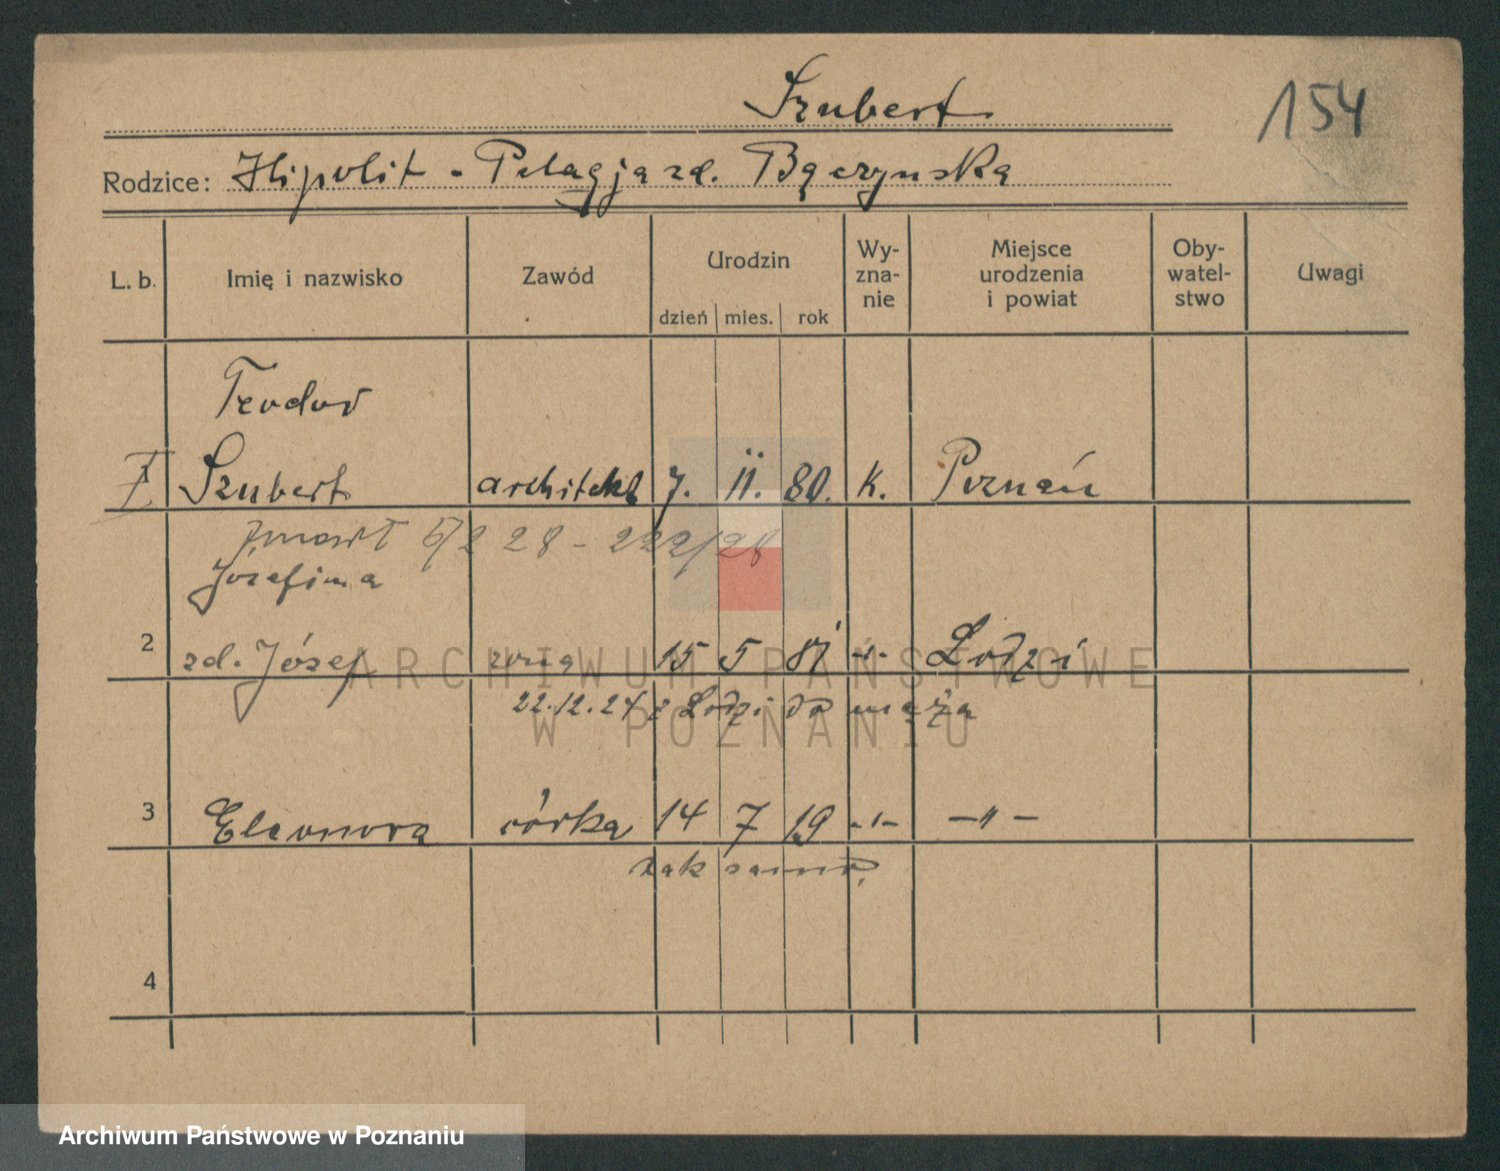 Szubert
154
Rodzice: Hipolit - Pelagja zd. Bączynska
L. b. Imię i nazwisko Zawód Urodzin dzień mies. rok Wy-zna-nie Miejsce urodzenia i powiat Oby-watel-stwo Uwagi
Teodor
Szubert architekt 7. II. 80. K. Poznań
zmarł 6/2 28 - 222/28
Józefina
2 zd. Józef żona 15 5 81 -"- Łodzi
22.12.24 z Łodzi do męża
3 Eleonora córka 14 7 19 -"- -"-
tak samo.
4
ARCHIWUM PAŃSTWOWE
W POZNANIU
Archiwum Państwowe w Poznaniu